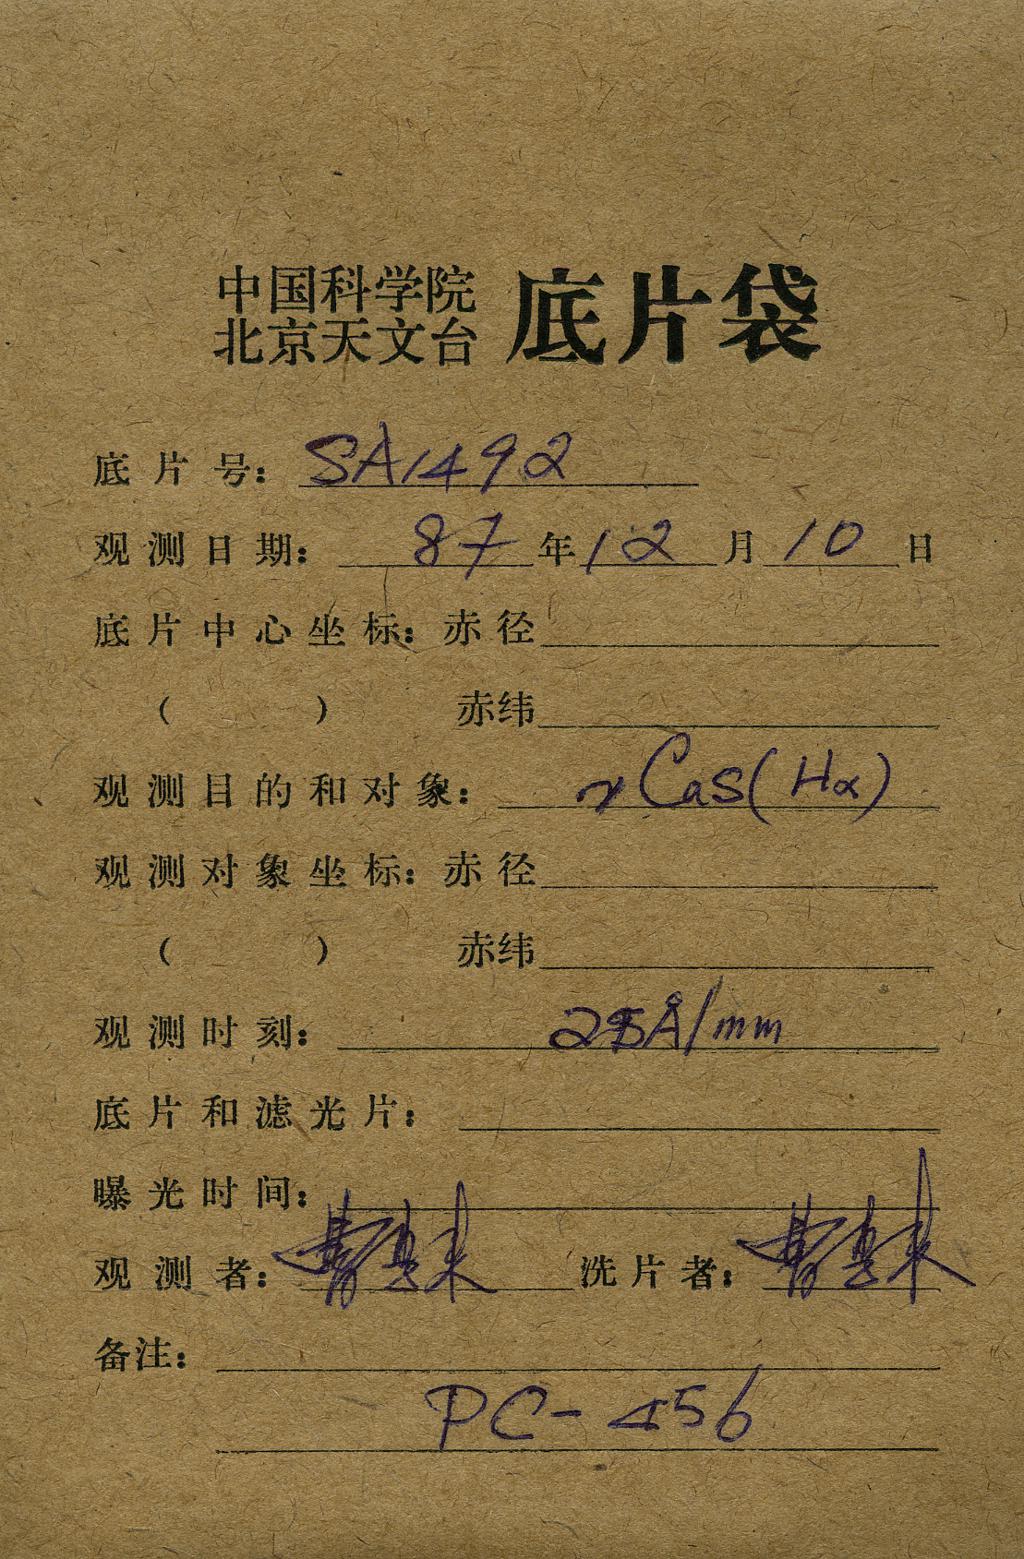 中国科学院
北京天文台 底片袋
底片号: SA1492
观测日期: 87年12月10日
底片中心坐标: 赤径
( ) 赤纬
观测目的和对象: γ Cas (Hα)
观测对象坐标: 赤径
( ) 赤纬
观测时刻: Å/mm
底片和滤光片:
曝光时间:
观测者: 洗片者:
备注:
PC-456